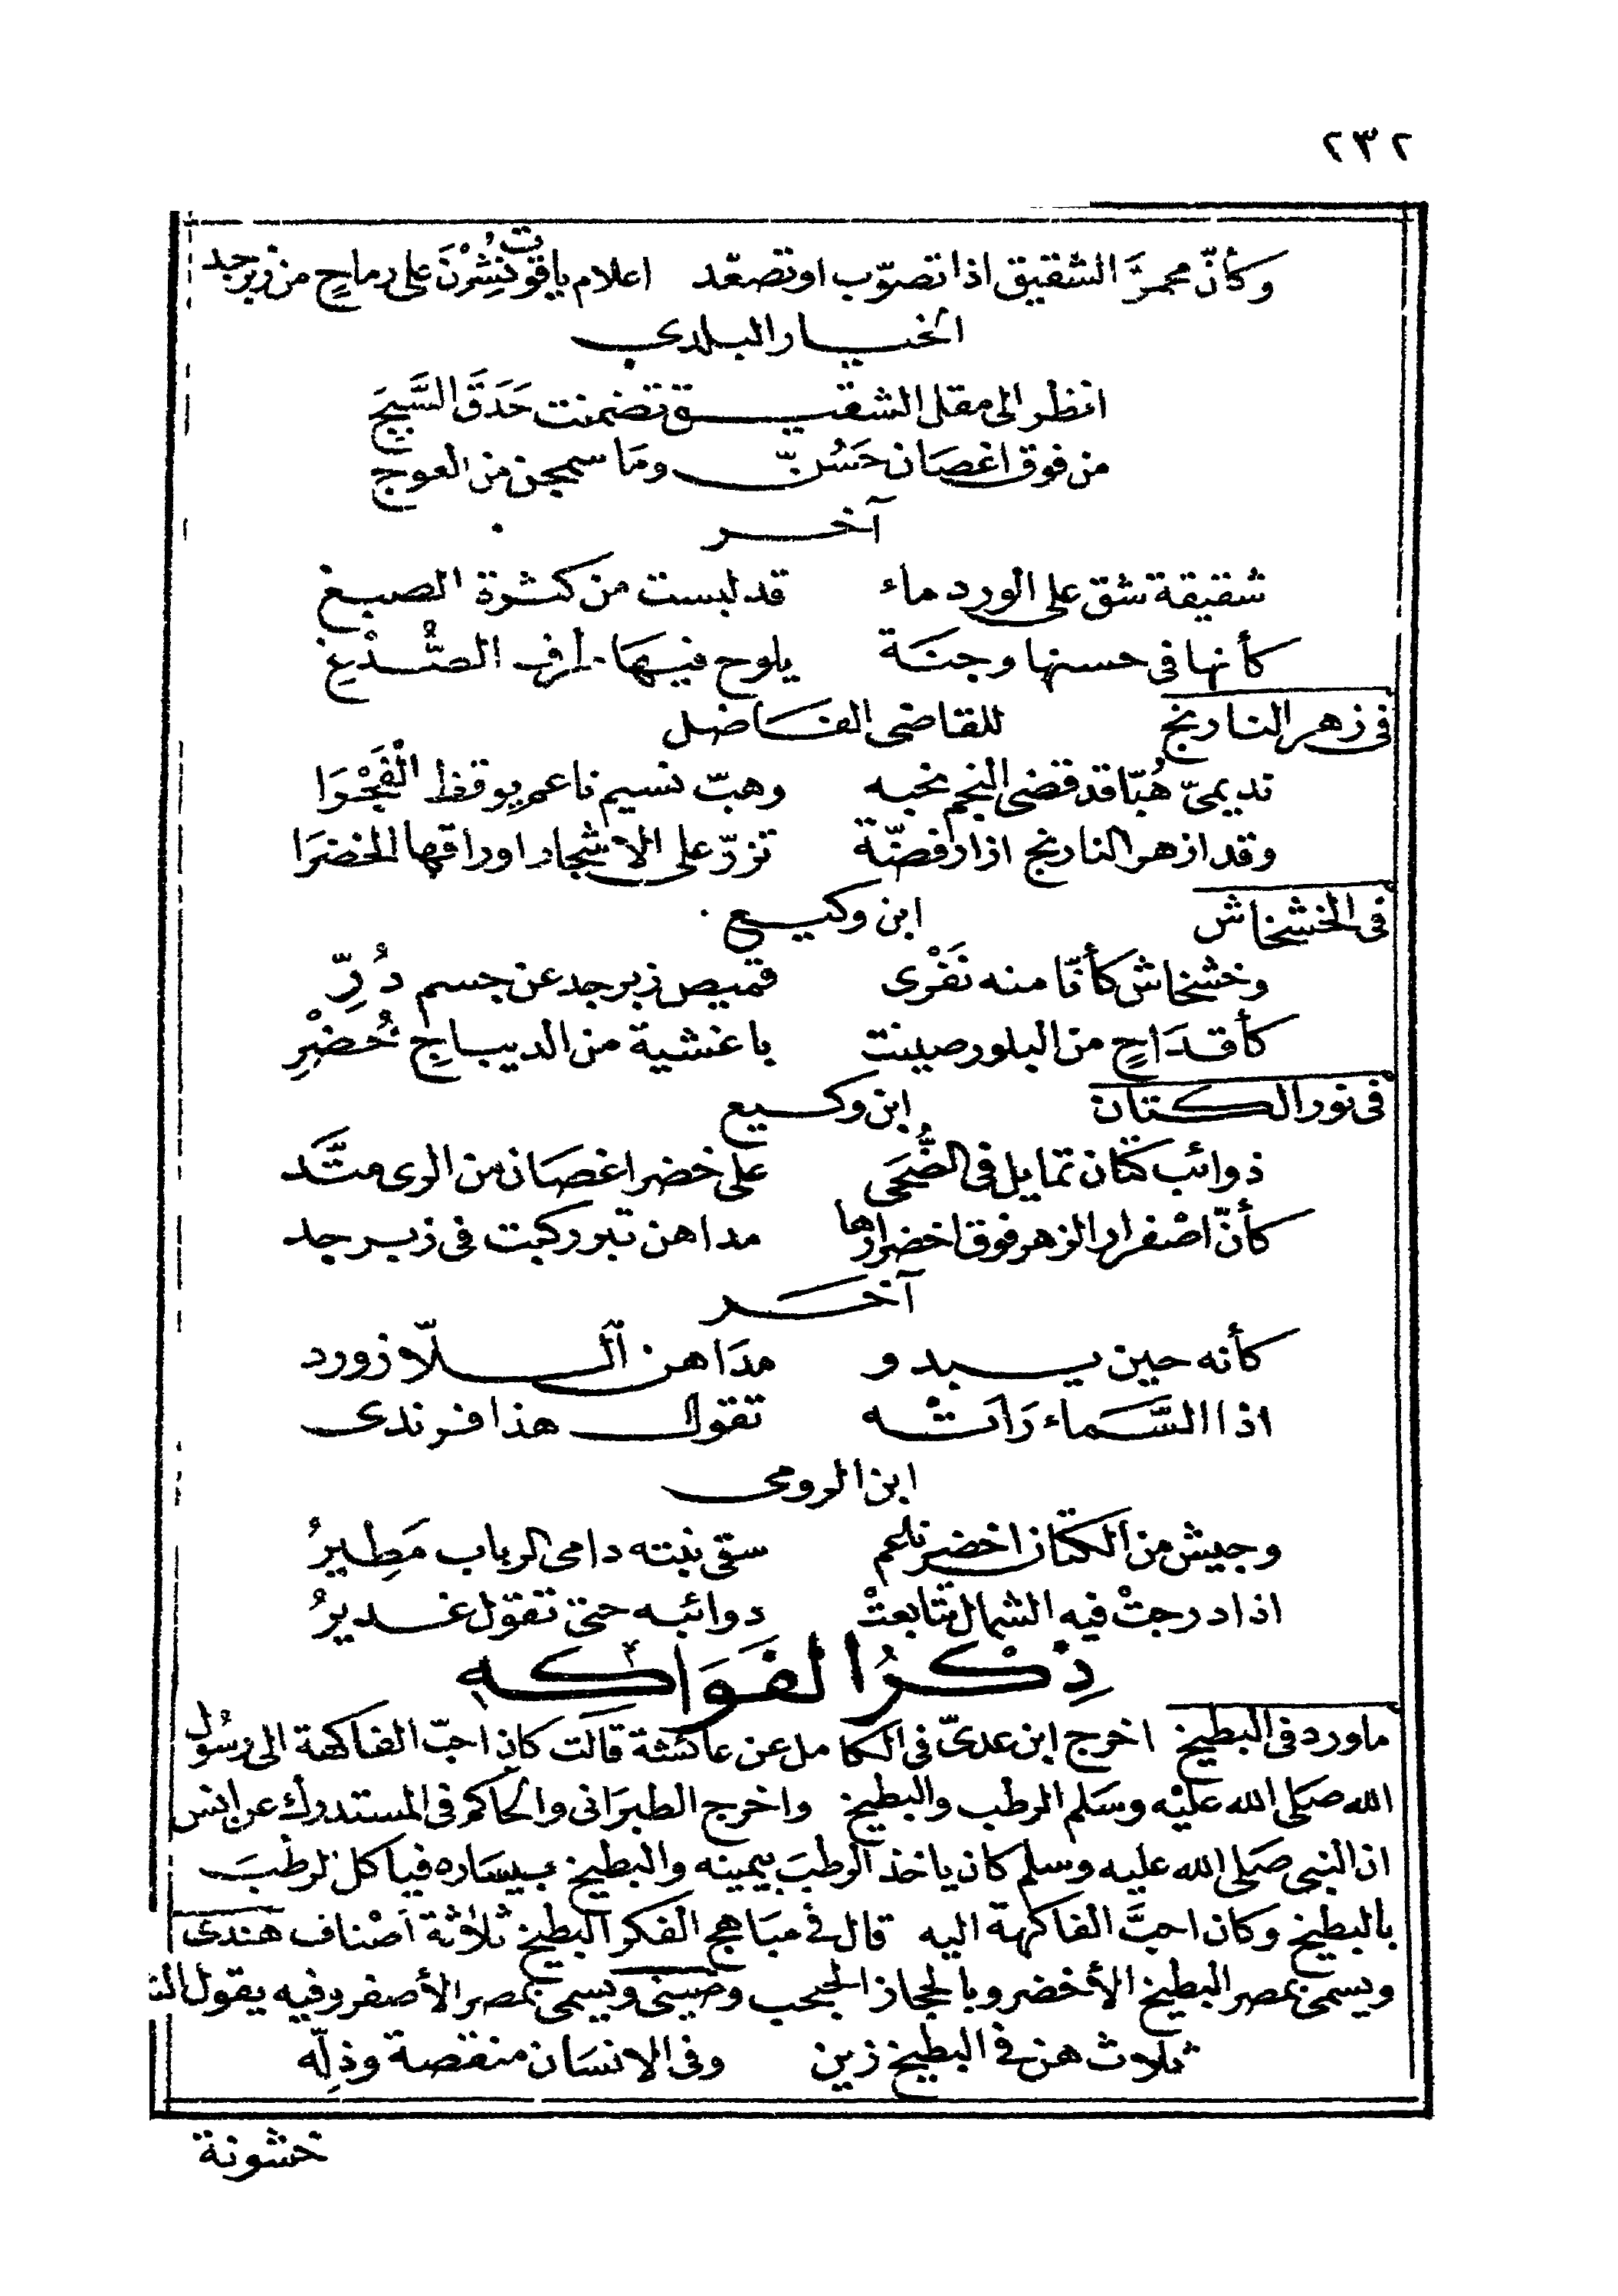 ٢٣٢
وكأنّ محمرَّ الشقيق اذا تصوّب او تصعّد اعلام ياقوت نُشِرْنَ على رماحٍ من زبرجد
الخبــار البلدي
انظر الى مقل الشقيــق تضمنت حَدَقَ السَّبَج
من فوق اغصان حَسُنّ وما سمجن من العوج
آخــر
شقيقة شق على الورد ماء قد لبست من كثرة الصبغ
كأنها فى حسنها وجنة يلوح فيها طرف الصُّدْغِ
فى زهر النارنج للقاضى الفاضل
نديمىّ هُبّا قد قضى النجم نحبه وهبّ نسيم ناعم يوقظ الْفَجْرَا
وقد ازهر النارنج ازرار فضّة تزرّ على الاشجار اوراقها الخضرَا
فى الخشخاش ابن وكيع
وخشخاش كأنّا منه نَفْرى قميص زبرجد عن جسم دُرِّ
كأقدَاحٍ من البلور صينت باغشية من الديباج خُضْرِ
فى نور الكتان ابن وكيع
ذوائب كتان تمايل فى الضُّحَى على خضر اغصان من الرى متّد
كأنّ اصْفرار الزهر فوق اخضرارها مداهن تبر ركبت فى زبرجد
آخــر
كأنه حين يبدو مدَاهن اللّازورد
اذا السَّماء رَاَتْه تقول هذا فرندى
ابن الرومى
وجيش من الكتان اخضر ناعم سقى نبته دامى الرباب مَطِيرُ
اذا درجتْ فيه الشمال تتابعتْ ذوائبه حتى تقول غديرُ
ذِكْرُ الفَوَاكه
ما ورد فى البطيخ اخرج ابن عدىّ فى الكامل عن عائشة قالت كان احبّ الفاكهة الى رسُول
الله صَلى الله عليْه وسَلم الرطب والبطيخ واخرج الطبرَانى والحاكم فى المستدرك عن انس
ان النبى صَلى الله عليه وسلم كان ياخذ الرطبَ بيمينه والبطيخ بيسَاره فياكل الرطبَ
بالبطيخ وكان احبَّ الفاكهة اليه قال فى مبَاهج الفكر البطيخ ثلاثة اَصْناف هندى
ويسمى بمصر البطيخ الأخضر وبالحجاز الحبحب وصينى ويسمى بمصر الأصفر وفيه يقول
ثلاث هن فى البطيخ زين وفى الانسَان منقصة وذِلّه
خشونة